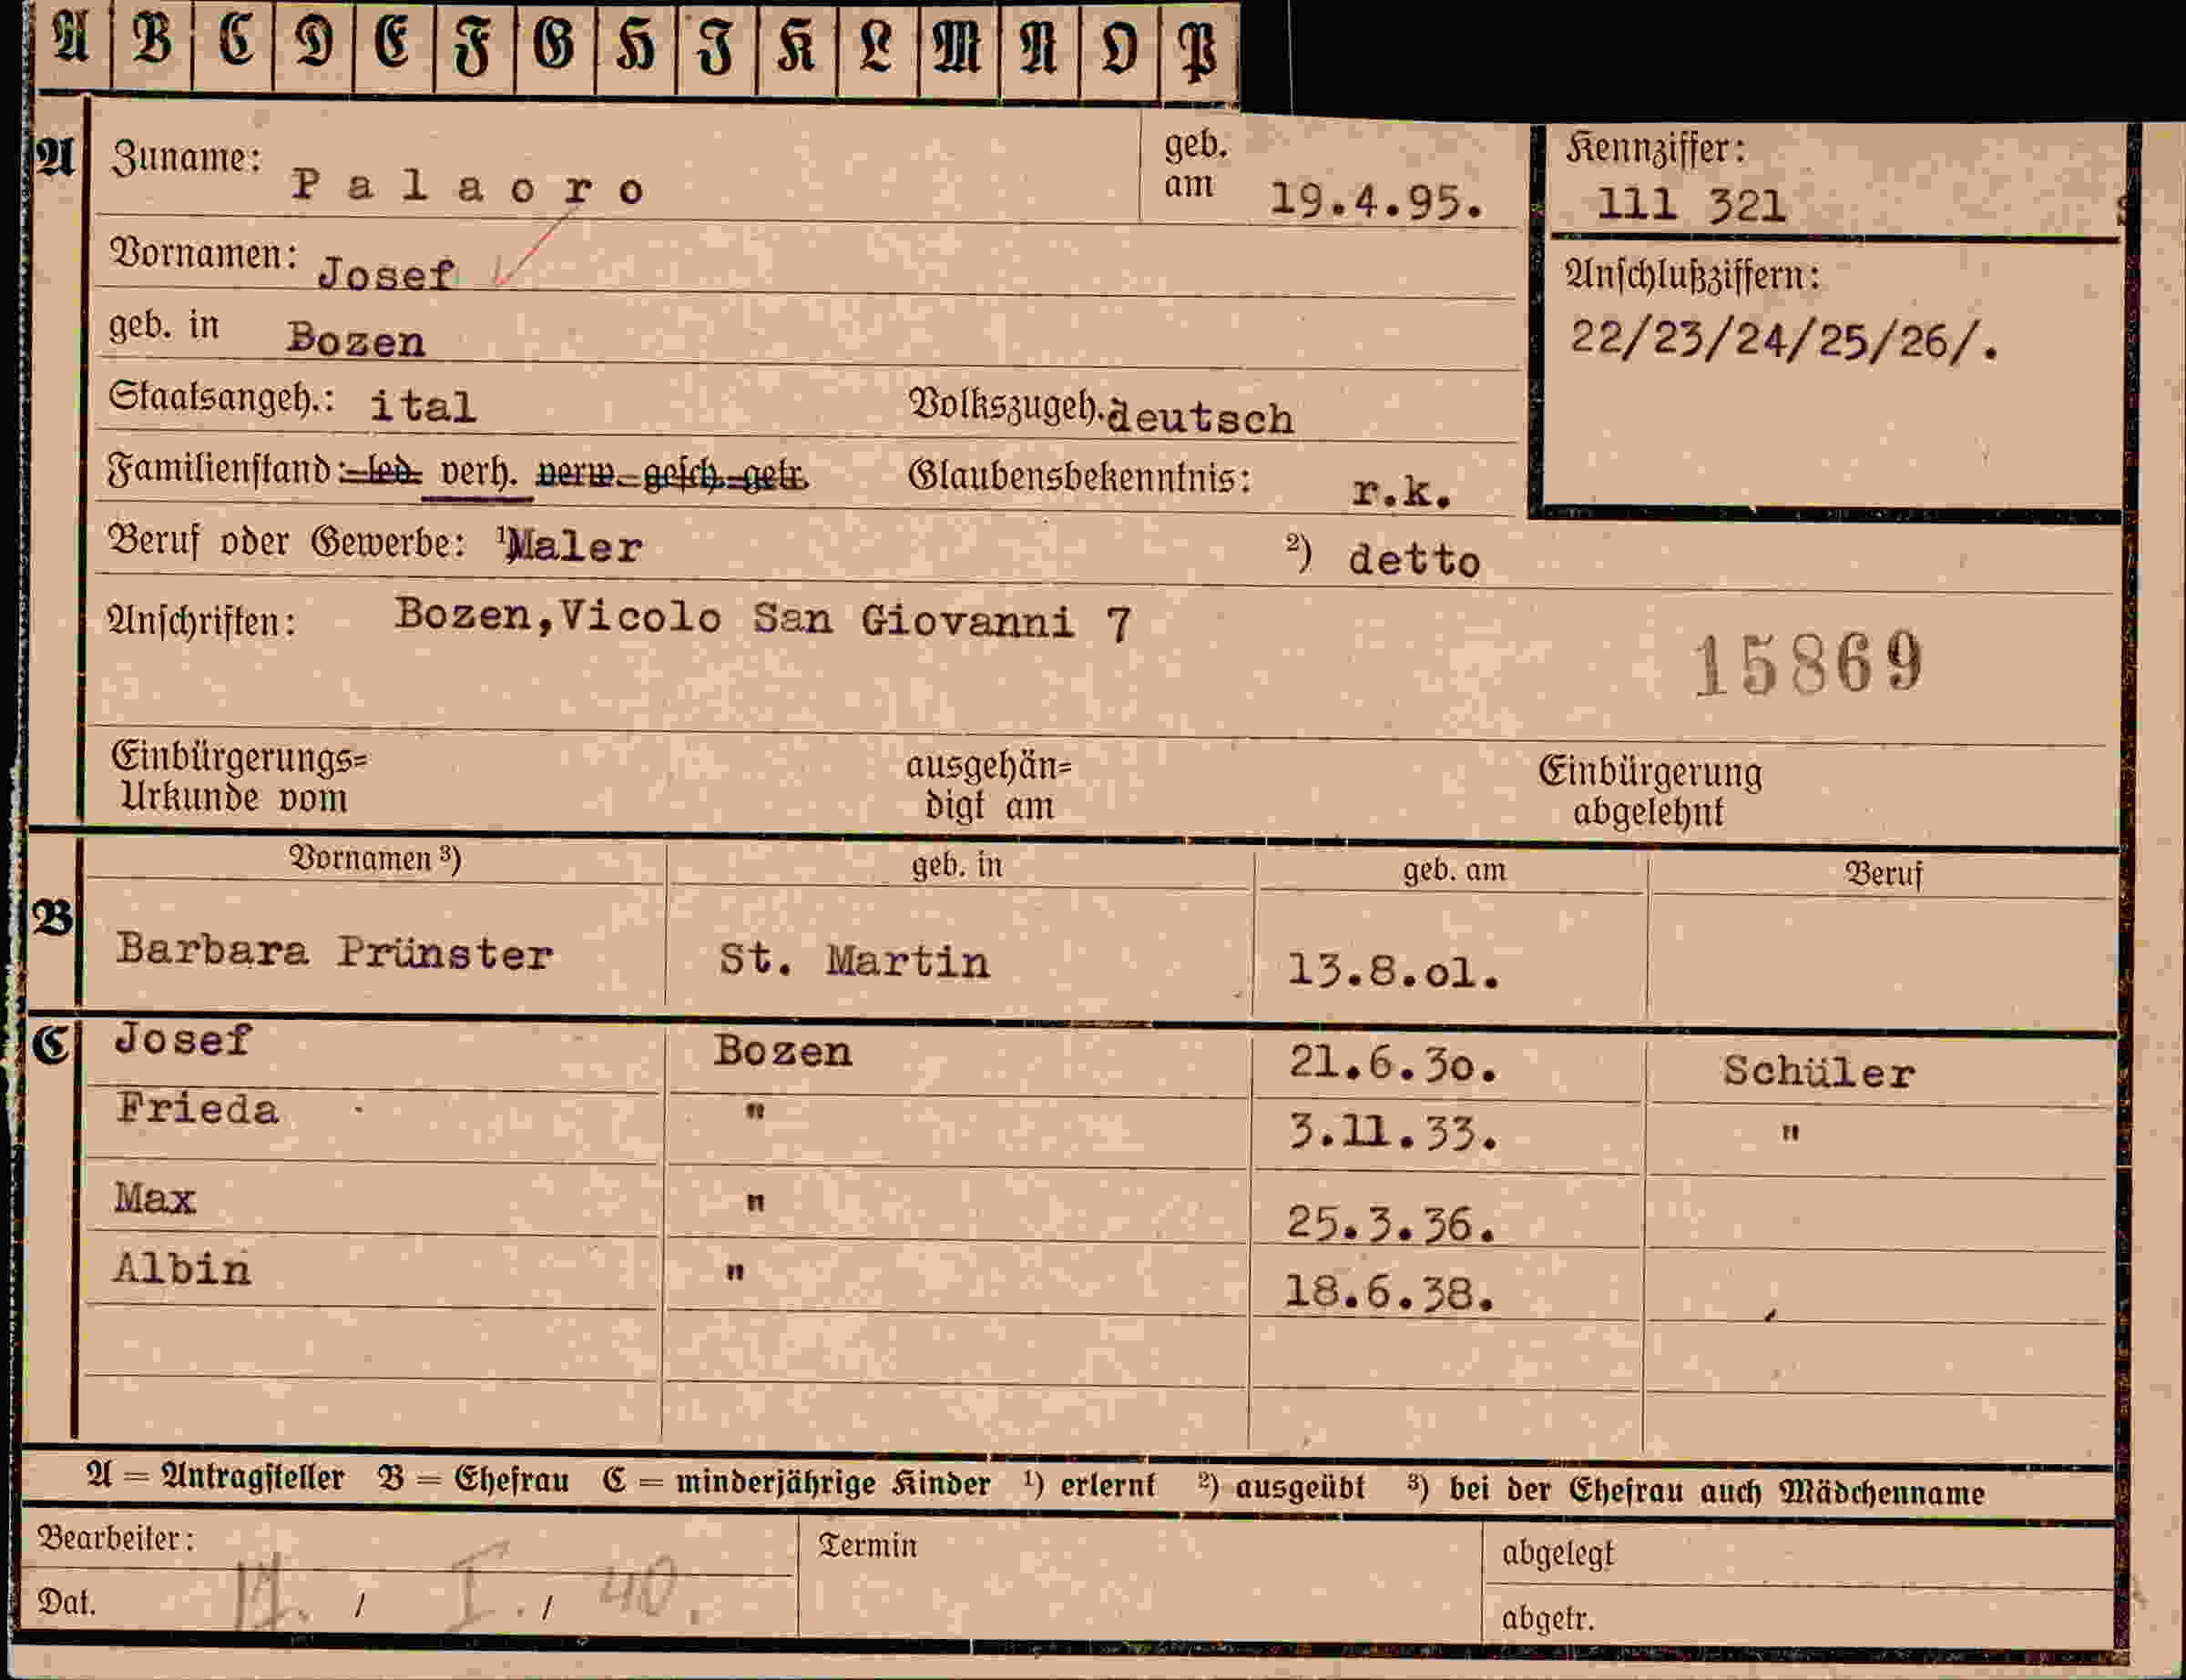 A B C D E F G H J K L M N O P
A Zuname: Palaoro geb. am 19.4.95. Kennziffer: 111 321
Vornamen: Josef Anschlußziffern:
geb. in Bozen 22/23/24/25/26/.
Staatsangeh.: ital Volkszugeh. deutsch
Familienstand: led. verh. verw. gesch. getr. Glaubensbekenntnis: r.k.
Beruf oder Gewerbe: ¹) Maler ²) detto
Anschriften: Bozen, Vicolo San Giovanni 7
15869
Einbürgerungs= ausgehän= Einbürgerung
Urkunde vom digt am abgelehnt
Vornamen ³) geb. in geb. am Beruf
B Barbara Prünster St. Martin 13.8.o1.
C Josef Bozen 21.6.3o. Schüler
Frieda " 3.11.33. "
Max " 25.3.36.
Albin " 18.6.38.
A = Antragsteller B = Ehefrau C = minderjährige Kinder ¹) erlernt ²) ausgeübt ³) bei der Ehefrau auch Mädchenname
Bearbeiter: Termin abgelegt
Dat. / I. / 40. abgetr.